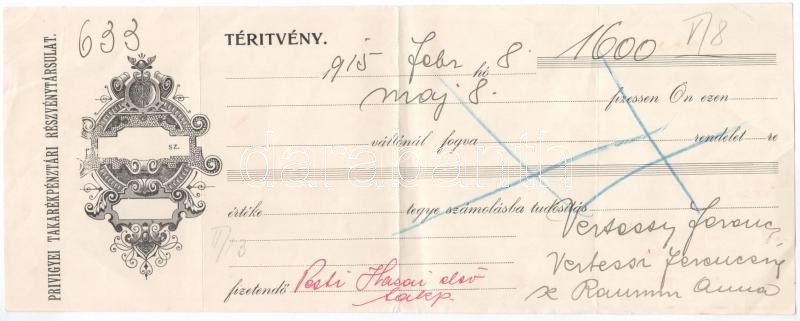 PRIVIGYEI TAKARÉKPÉNZTÁRI RÉSZVÉNYTÁRSULAT.
633
SZ.
TÉRITVÉNY.
1600 V/8
915 febr hó 8.
maj 8. fizessen Ön ezen
váltónál fogva rendelet re
értéke tegye számolásba tudósitás
Vertessy Ferenc
II/13
Vertessi Ferencné
fizetendő Pesti Hazai első
takp.
x Raumm Anna
darabanth